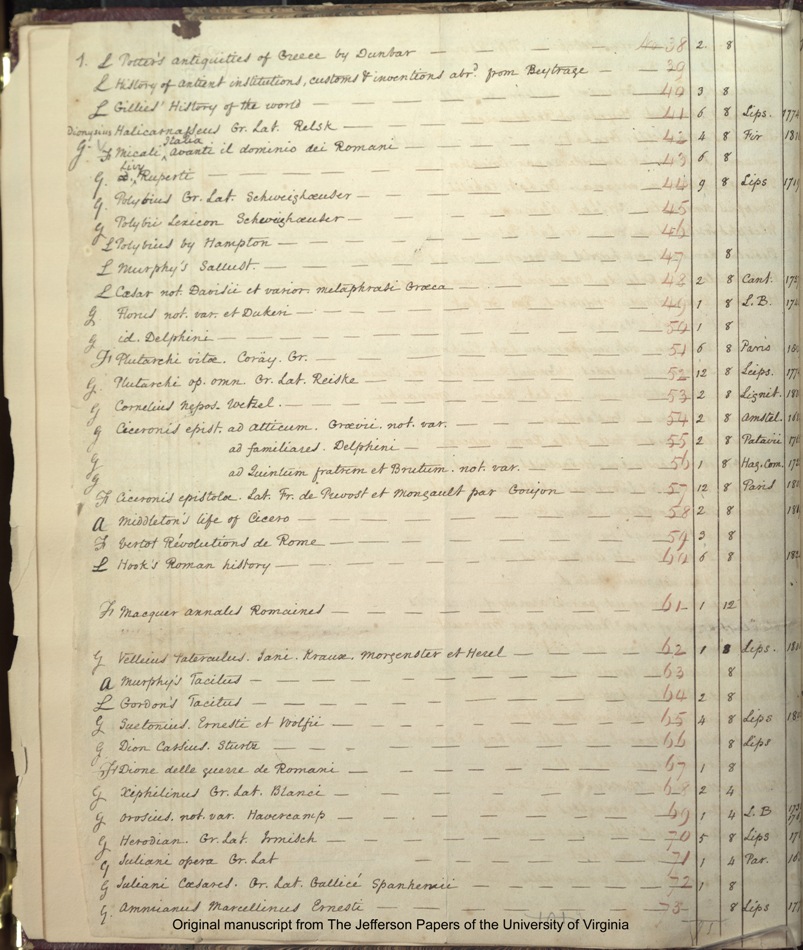 1. L Potter's antiquities of Greece by Dunbar — 38 2. 8
L History of antient institutions, customs & inventions abr.d from Beytrage — 39
L Gillies' History of the world — 40 3 8
Dionysius Halicarnasseus Gr. Lat. Reisk — 41 6 8 Lips.
G.
Fr Micali, Italia avanti il dominio dei Romani — 42 4 8 Fir
G. Livy Ruperti — 43 6 8
G. Polybius Gr. Lat. Schweighæuser — 44 9 8 Lips
G Polybii Lexicon Schweighæuser — 45
L Polybius by Hampton — 46
L Murphy's Sallust. — 47 8
L Cæsar not. Davisii et varior. metaphrasi Græca — 48 2 8 Cant.
G Florus not. var. et Dukeri — 49 1 8 L.B.
G id. Delphini — 50 1 8
Fr Plutarchi vitæ. Coräy. Gr. — 51 6 8 Paris
G. Plutarchi op. omn. Gr. Lat. Reiske — 52 12 8 Leips.
G Cornelius Nepos. Wetzel. — 53 2 8 Lignit.
G Ciceronis epist. ad Atticum. Grævii. not. var. — 54 2 8 Amstel.
G ad familiares. Delphini — 55 2 8 Patavii
G ad Quintum fratrem et Brutum. not. var. — 56 1 8 Hag. Com.
Fr Ciceronis epistolæ. Lat. Fr. de Prevost et Mongault par Goujon — 57 12 8 Paris
A Middleton's life of Cicero — 58 2 8
Fr Vertot Révolutions de Rome — 59 3 8
L Hook's Roman history — 60 6 8
Fr Macquer annales Romaines — 61 1 12
G Velleius Paterculus. Jani. Krause. Morgenster et Hezel — 62 1 8 Lips.
A Murphy's Tacitus — 63 8
L Gordon's Tacitus — 64 2 8
G Suetonius. Ernesti et Wolfii — 65 4 8 Lips
G Dion Cassius. Sturtz — 66 8 Lips
Fr Dione delle guerre de Romani — 67 1 8
G Xiphilinus Gr. Lat. Blanci — 68 2 4
G Orosius. not. var. Havercamp — 69 1 4 L.B
G Herodian. Gr. Lat. Irmisch — 70 5 8 Lips
G Juliani opera Gr. Lat — 71 1 4 Par.
G Juliani Cæsares. Gr. Lat. Gallicé Spanhemii — 72 1 8
G. Ammianus Marcellinus Ernesti — 73 8 Lips
Original manuscript from The Jefferson Papers of the University of Virginia